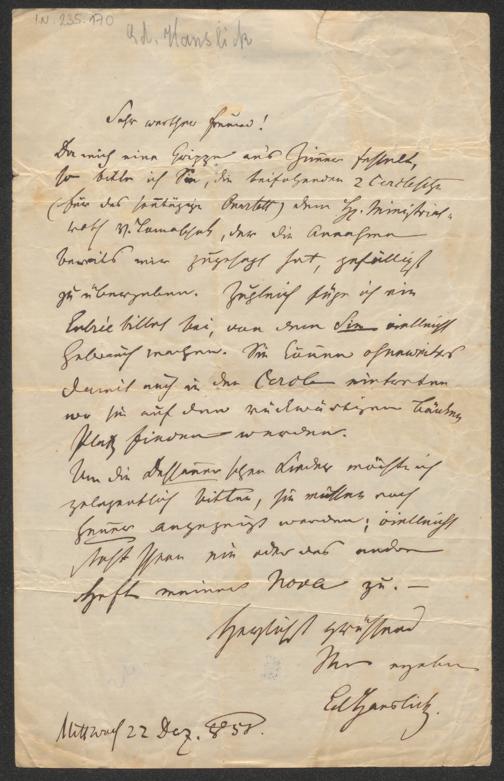 I.N. 235.170
Ed. Hanslick
Sehr werther Freund!
Da mich eine Grippe an's Zimmer fesselt,
so bitte ich Sie, die beifolgenden 2 Cerclesitze
(für das heutige Quartett) dem H. Ministerial-
rath v. , der die Annahme
bereits mir zugesagt hat, gefälligst
zu übergeben. Zugleich füge ich ein
Entréebillet bei, von dem Sie vielleicht
Gebrauch machen. Sie können ohneweiters
damit auch in den Cercle eintreten
wo Sie auf den rückwärtigen Bänken
Platz finden werden.
Um die Dessauer'schen Lieder möchte ich
gelegentlich bitten, sie müssen noch
heuer angezeigt werden; vielleicht
steht Ihnen ein oder das andre
Heft meiner Nova zu. –
Herzlichst grüßend
Ihr ergebener
Ed Hanslick.
Mittwoch 22 Dez. 1858.